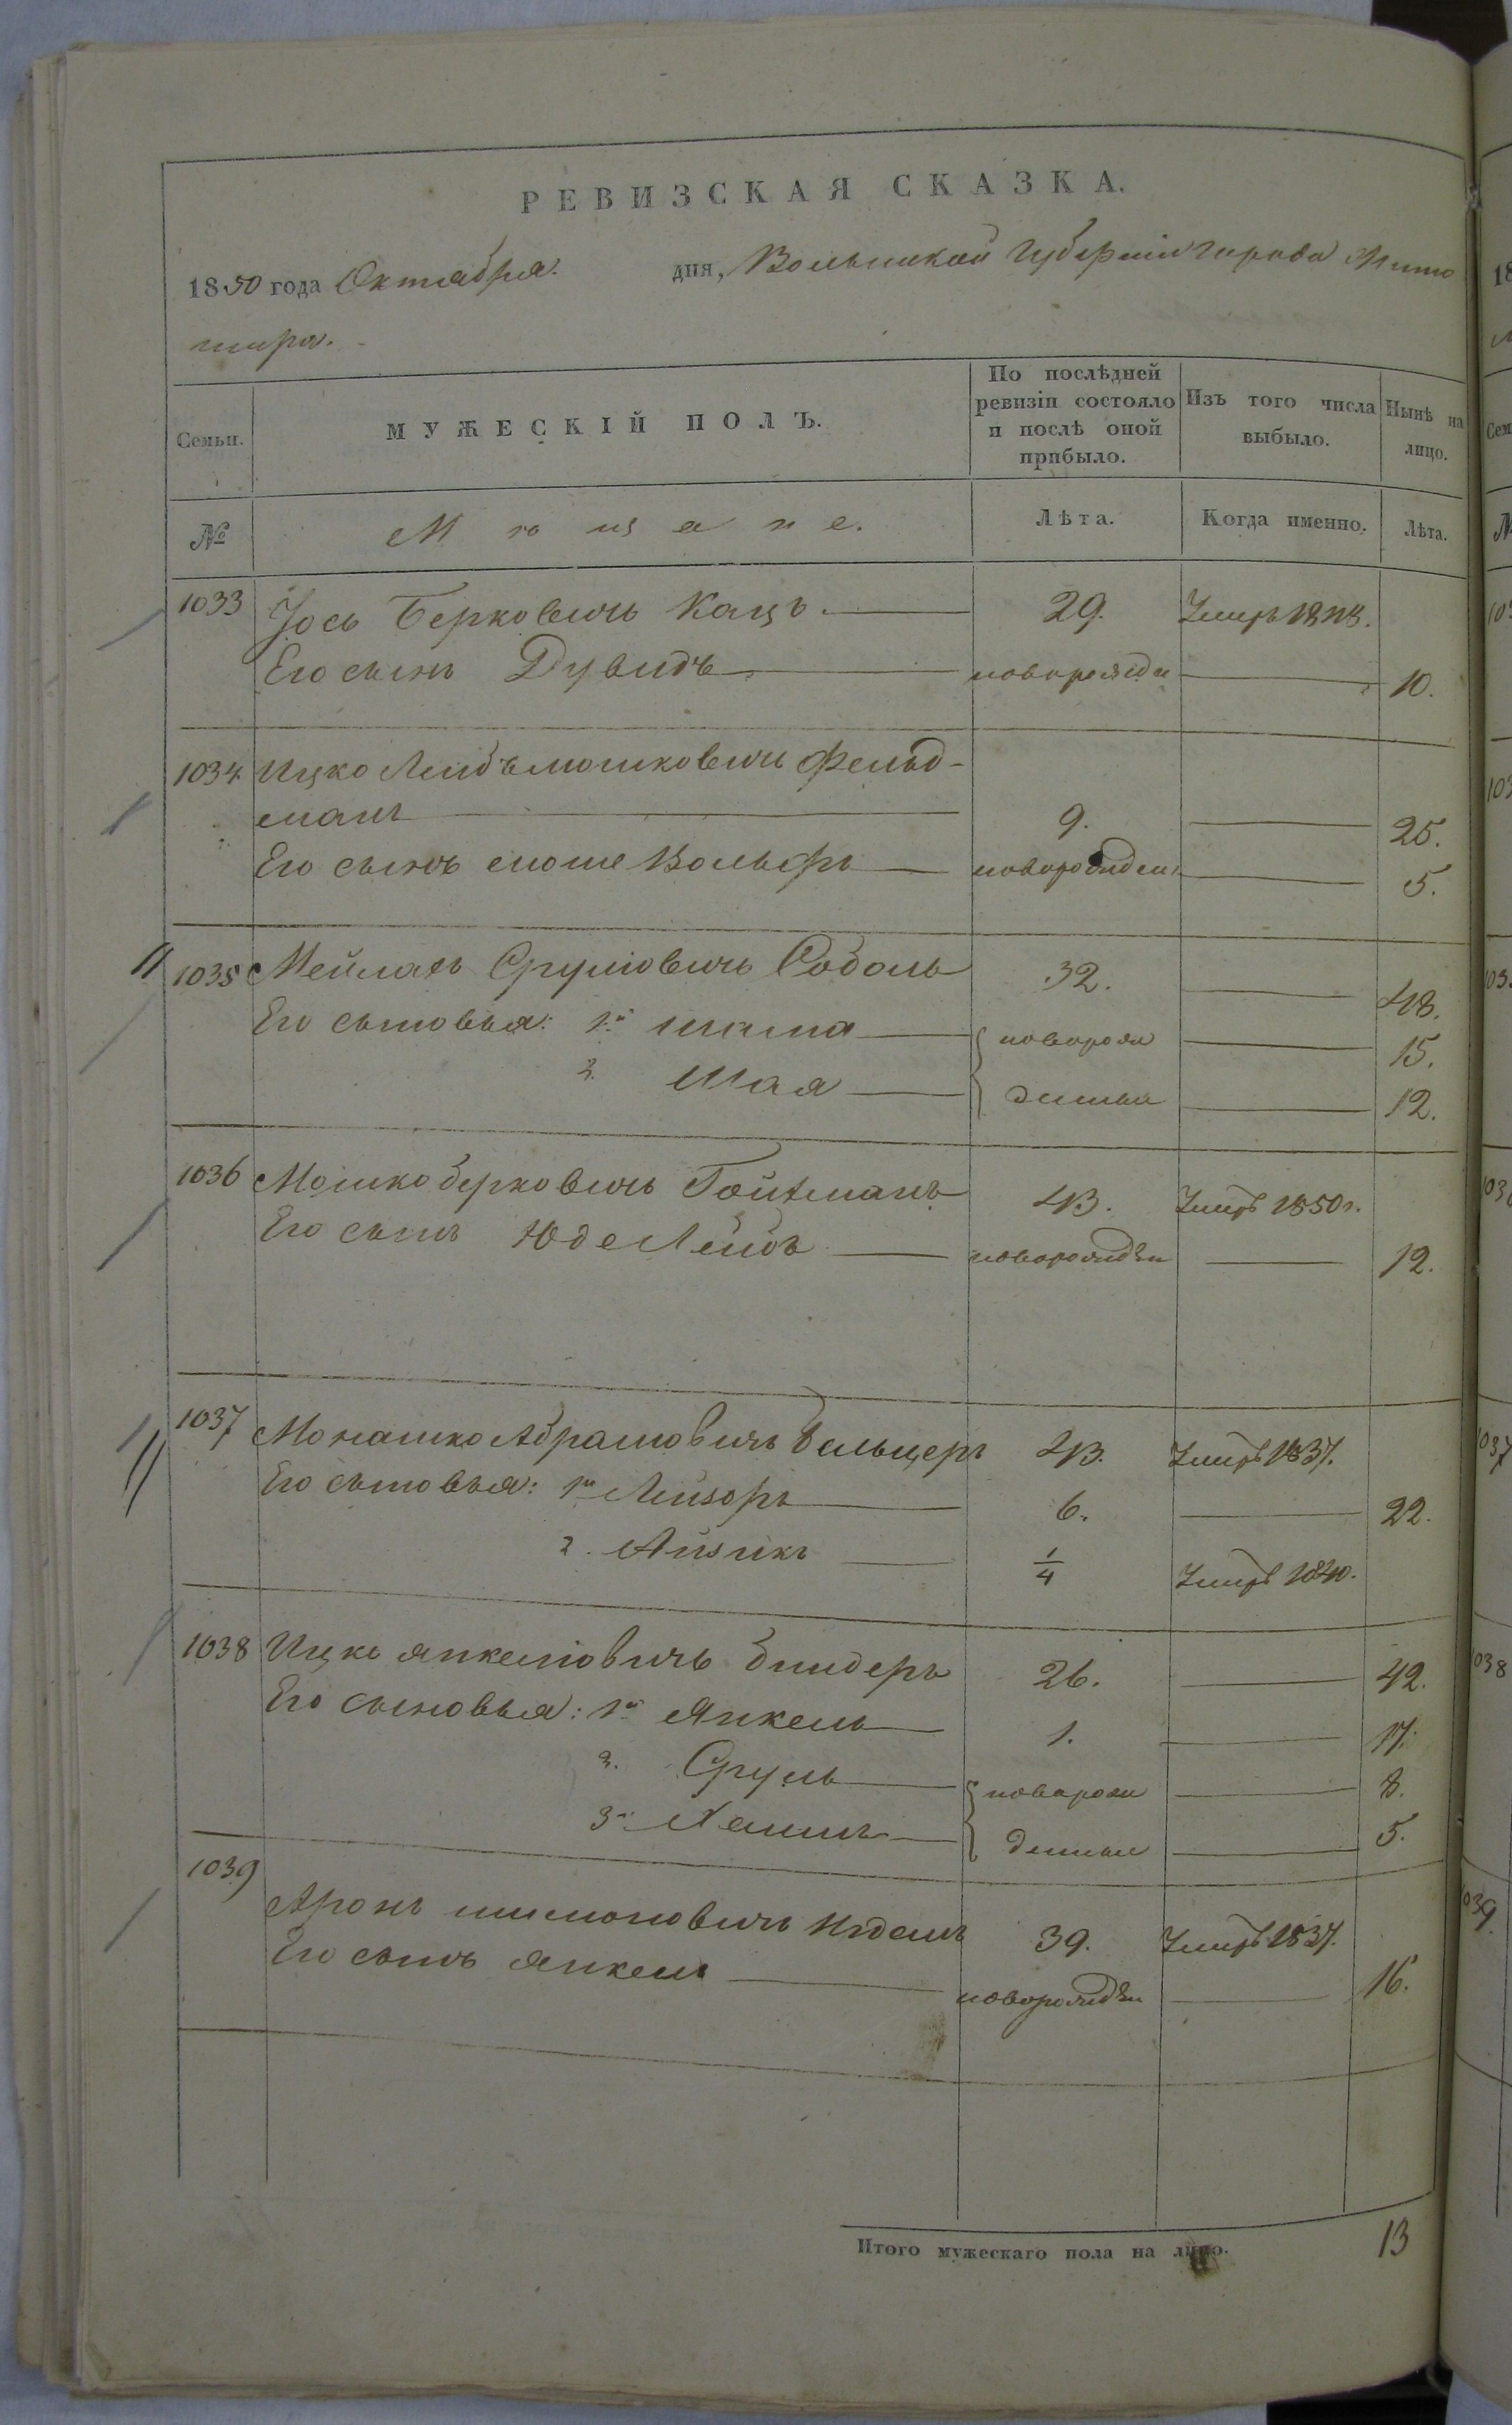 РЕВИЗСКАЯ СКАЗКА.
1850 года Октября. дня, Волынской Губернии города Жито
мира.
Семьи. МУЖЕСКІЙ ПОЛЪ. По послѣдней ревизіи состояло и послѣ оной прибыло. Изъ того числа выбыло. Нынѣ на лицо.
№ Мѣщане. Лѣта. Когда именно. Лѣта.
1033 Іось Берковичь Кацъ. 29. Умеръ
Его сынъ Дувидъ новорожден 10.
1034 Ицко Лейбъ Мошковичь Фельд-
манъ 9. 25.
Его сынъ Моше Вольфъ новорожден 5.
1035 Мейлахъ Срулiовичь Соболь 32. 48.
Его сыновья: 1й новорож 15.
2. Шая денныи 12.
1036 Мошко Берковичь Гойхманъ 43. Умеръ 1850 г.
Его сынъ Юде Лейбъ новорожден 12.
1037 Монашко Абрамовичь Бельцеръ 43. Умеръ 1837.
Его сыновья: 1й Лейзоръ 6. 22.
2. Айзикъ 1/4 Умеръ 1840.
1038 Ицко Янкеліовичь Биндеръ 26. 42.
Его сыновья: 1й Янкель 1. 17.
2. Сруль новорож 8.
3й Хаимъ денныи 5.
1039
Аронъ Шимоновичь 39. Умеръ 1837.
Его сынъ Янкель новорожден 16.
Итого мужескаго пола на лицо. 13